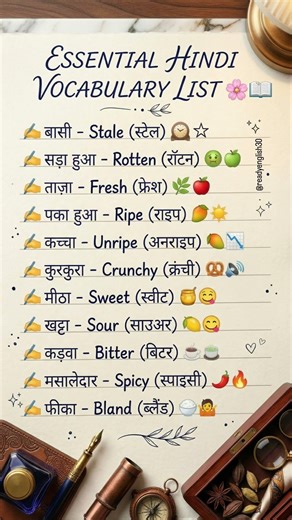 ESSENTIAL HINDI
VOCABULARY LIST 🌸📖
✍️ बासी – Stale (स्टेल) 🕰️☆
✍️ सड़ा हुआ – Rotten (रॉटन) 🤢🍏
✍️ ताज़ा – Fresh (फ्रेश) 🌿🍎
✍️ पका हुआ – Ripe (राइप) 🥭☀️
✍️ कच्चा – Unripe (अनराइप) 🥭📉
✍️ कुरकुरा – Crunchy (क्रंची) 🥨🔊
✍️ मीठा – Sweet (स्वीट) 🍯😋
✍️ खट्टा – Sour (साउअर) 🍋😋
✍️ कड़वा – Bitter (बिटर) ☕🍵
✍️ मसालेदार – Spicy (स्पाइसी) 🌶️🔥
✍️ फीका – Bland (ब्लैंड) 🍚🤷
@readyenglish30